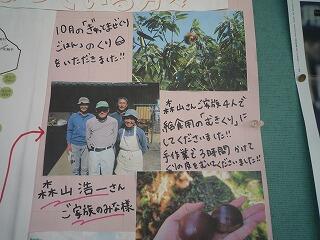 10月「ぎゅってまぜぐり
ごはん」のくり
をいただきました!!
森山さんご家族4人で
給食用の「むきぐり」に
してくださいました!!
手作業で3時間かけて
くりの皮をむいてくださいました!!
森山 浩一さん
ご家族のみな様